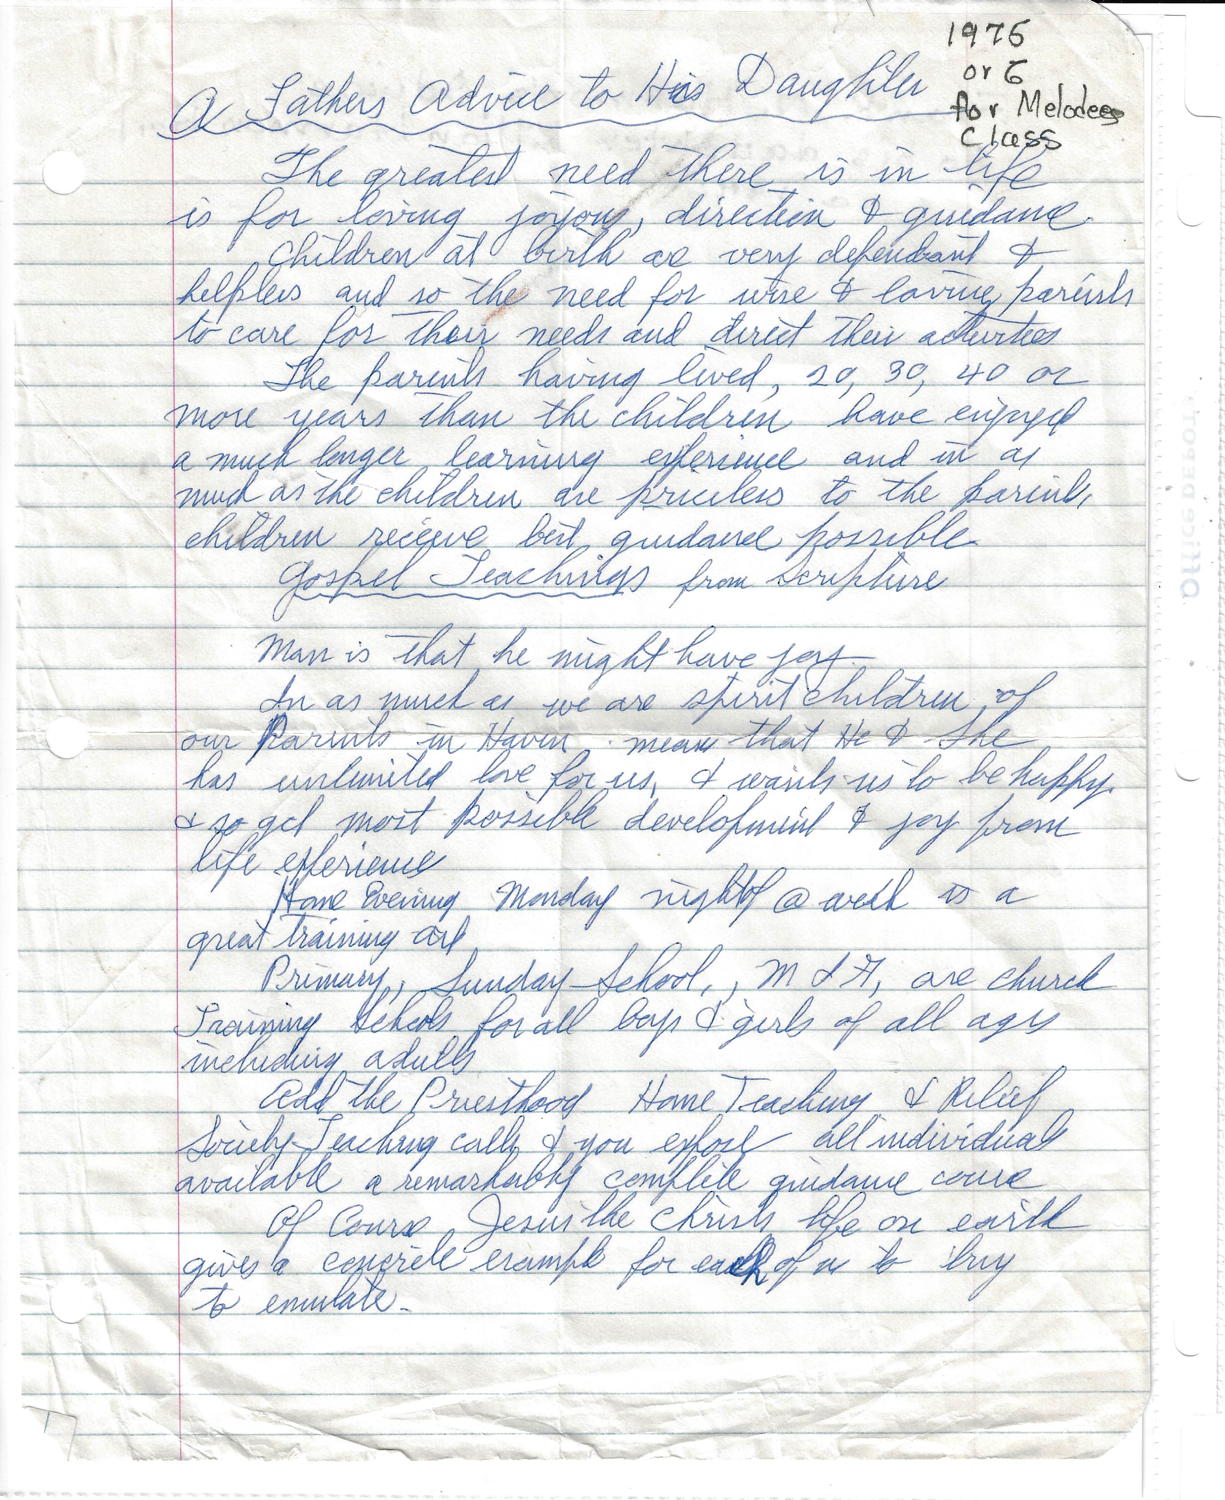 1975
or 6
for Melodees
Class
A Fathers Advice to His Daughter
The greatest need there is in life
is for loving joyous, direction & guidance.
Children at birth are very dependant &
helpless and so the need for wise & loving parents
to care for their needs and direct their activities
The parents having lived, 20, 30, 40 or
more years than the children have enjoyed
a much longer learning experience and in as
much as the children are priceless to the parents,
children receive best guidance possible.
Gospel Teachings from Scripture
Man is that he might have joy.
In as much as we are spirit children of
our Parents in Haven means that He & She
has unlimited love for us, & wants us to be happy.
& so get most possible development & joy from
life experience
Home Evening Monday night of @ week is a
great training aid
Primary, Sunday-School, M I A, are church
Training Schools for all boys & girls of all ages
including adults
Add the Priesthood Home Teaching & Relief
Society Teaching calls & you expose all individuals
available a remarkably complete guidance course
Of Course Jesus the Christs life on earth
gives a concrete example for each of us to try
to emulate.
Office DEPOT